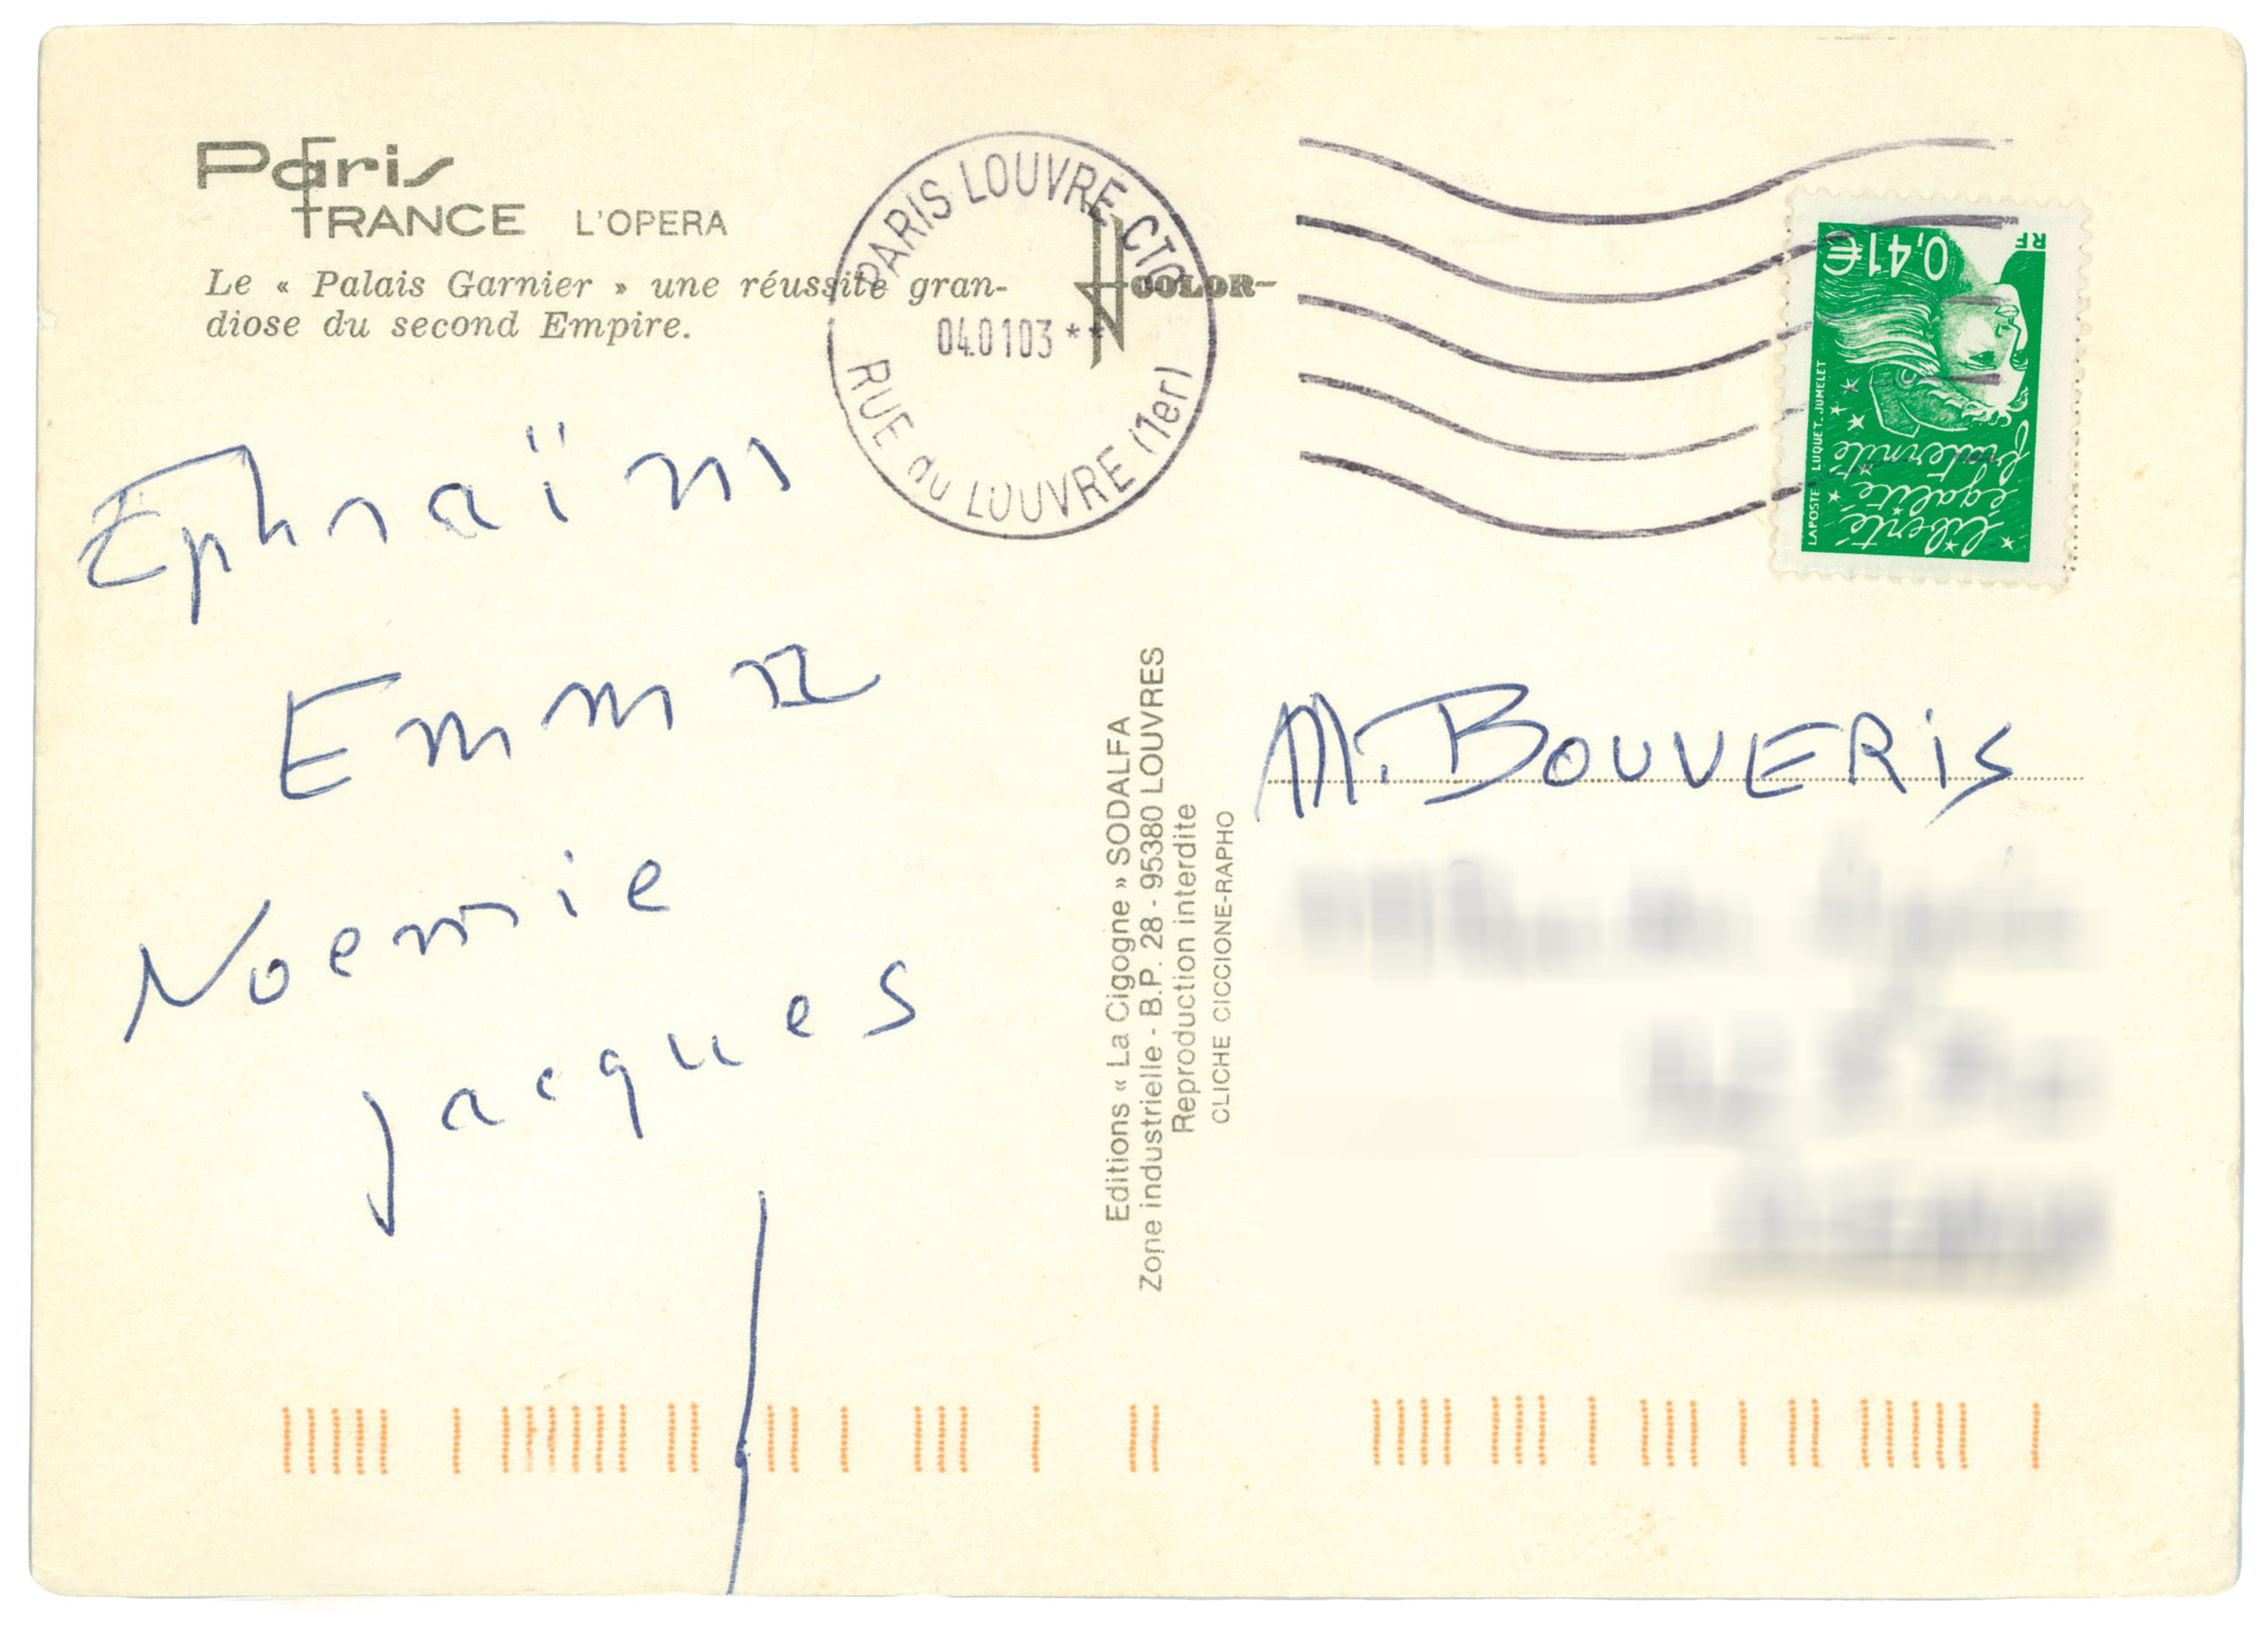 Paris
FRANCE L'OPERA
Le « Palais Garnier » une réussite gran-
diose du second Empire.
COLOR
PARIS LOUVRE CTC
040103 **
RUE du LOUVRE (1er)
RF
0,41€
LAPOSTE LUQUET. JUMELET
liberté
égalité
fraternité
Ephraïm
Emma
Noemie
Jacques
Editions « La Cigogne » SODALFA
Zone industrielle - B.P. 28 - 95380 LOUVRES
Reproduction interdite
CLICHE CICCIONE-RAPHO
M. BOUVERIS